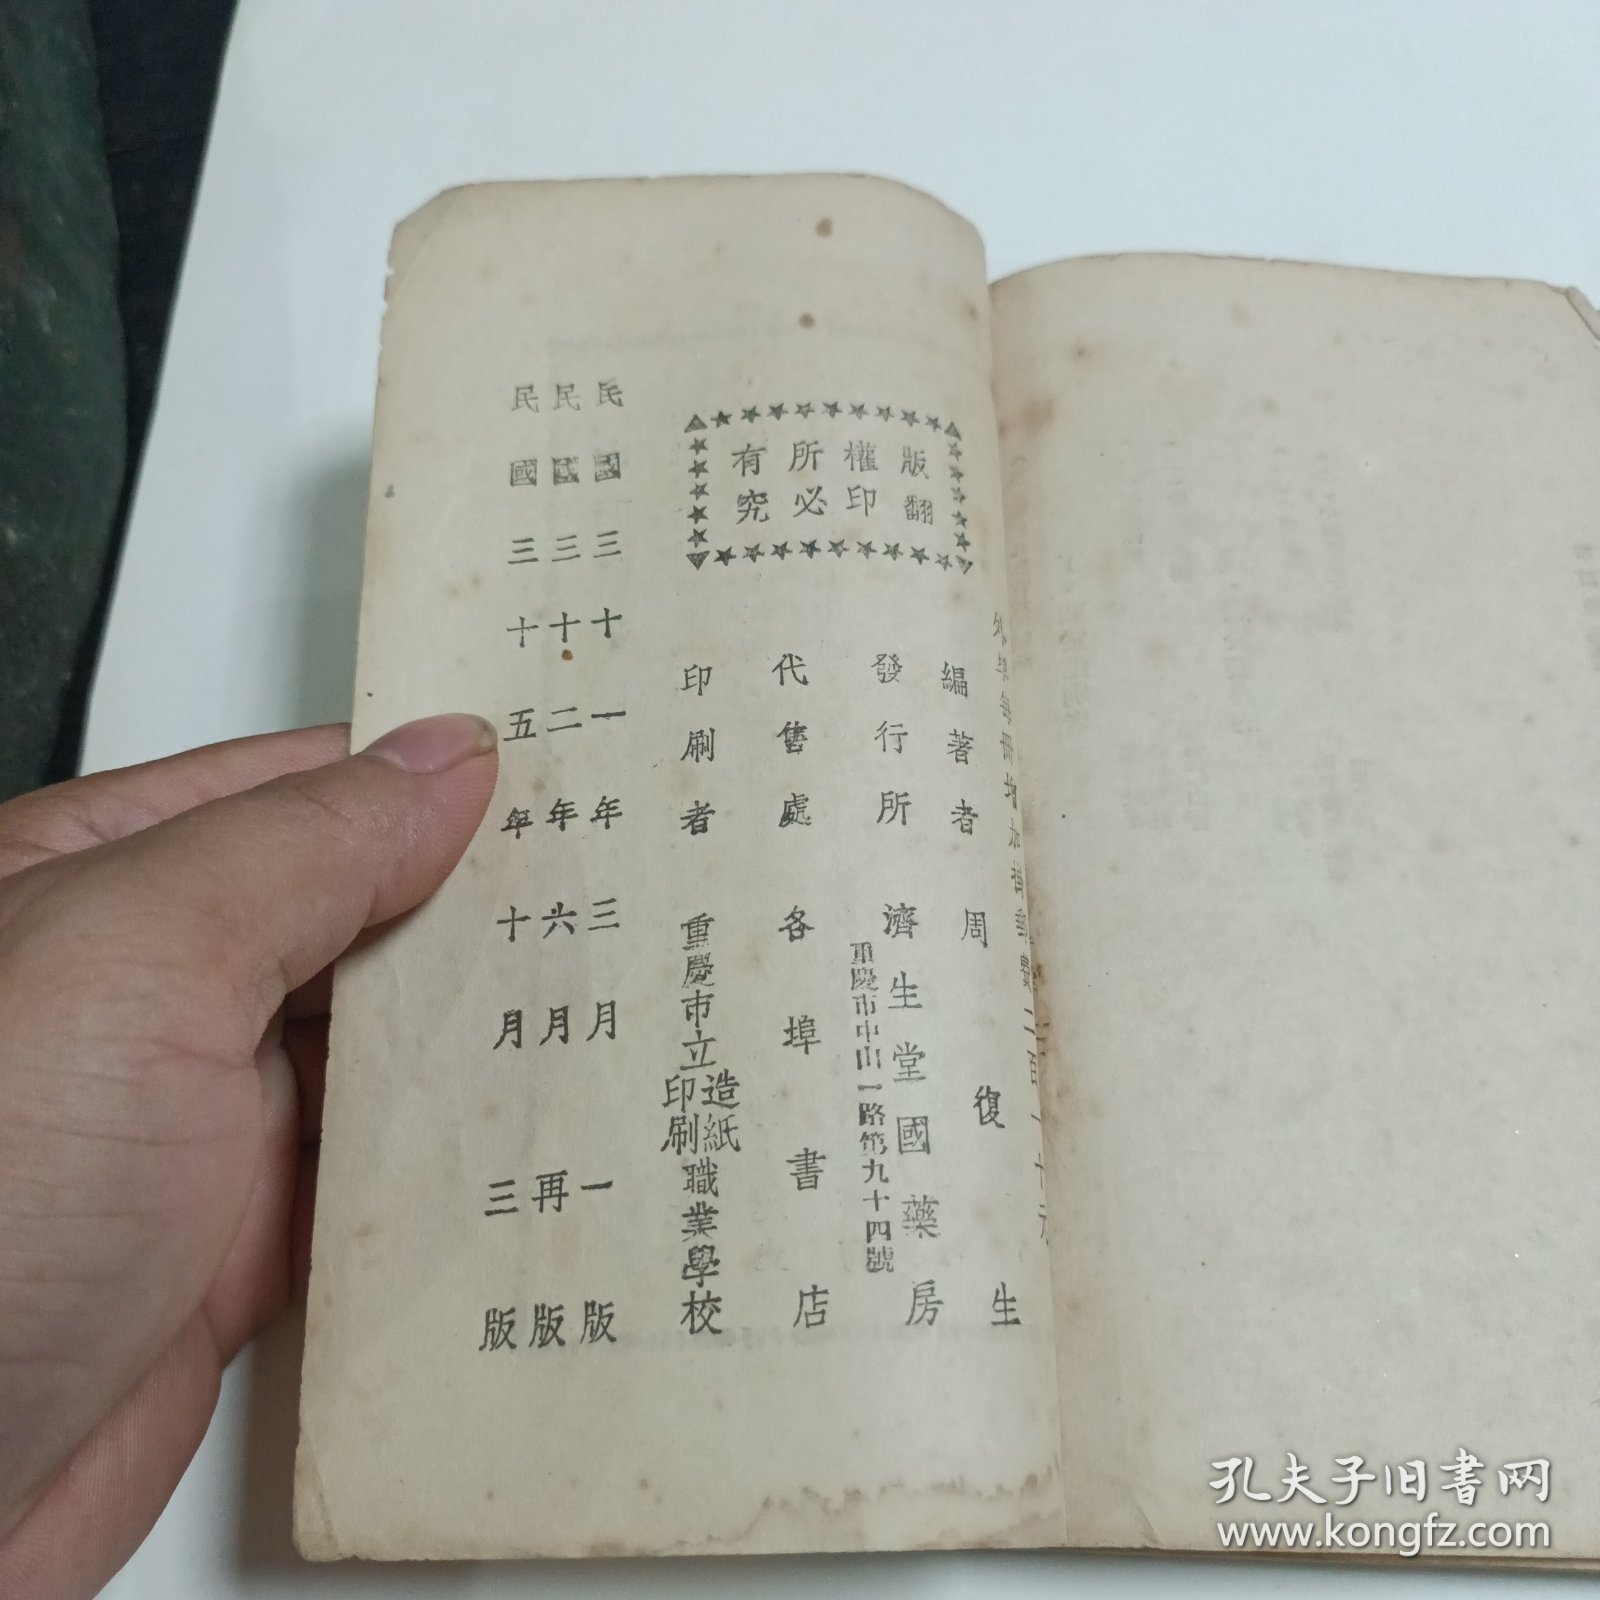 外埠每冊增加掛郵費二百一十元
編著者　周復生
發行所　濟生堂國藥房
重慶市中山一路第九十四號
代售處　各埠書店
印刷者　重慶市立造紙印刷職業學校
版權所有
翻印必究
民國三十一年三月　一版
民國三十二年六月　再版
民國三十五年十月　三版
孔夫子旧書网
www.kongfz.com